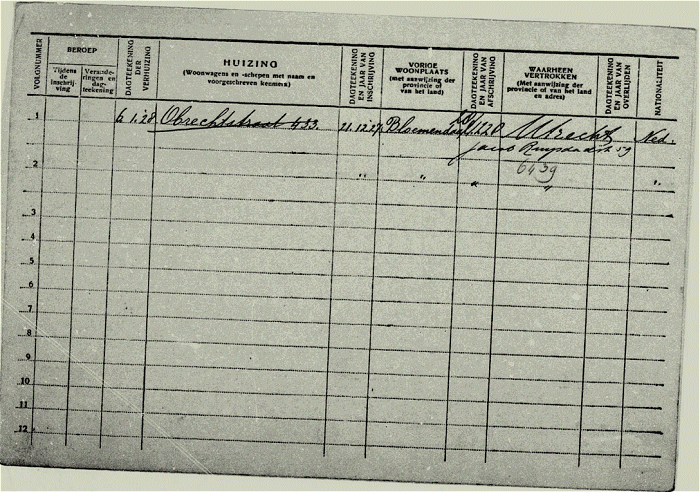 VOLGNUMMER
BEROEP
Tijdens de inschrij-ving
Verande-ringen en dag-teekening
DAGTEEKENING DER VERHUIZING
HUIZING
(Woonwagens en -schepen met naam en
voorgeschreven kenmerk)
DAGTEEKENING EN JAAR VAN INSCHRIJVING
VORIGE
WOONPLAATS
(met aanwijzing der
provincie of
van het land)
DAGTEEKENING EN JAAR VAN AFSCHRIJVING
WAARHEEN
VERTROKKEN
(Met aanwijzing der
provincie of van het land
en adres)
DAGTEEKENING EN JAAR VAN OVERLIJDEN
NATIONALITEIT
1 6.1.28 Obrechtstraat 433. 21.12.27 Bloemendaal Utrecht Ned.
Jacob Ruysdaelstr 59
6439
2 " " " " "
3
4
5
6
7
8
9
10
11
12